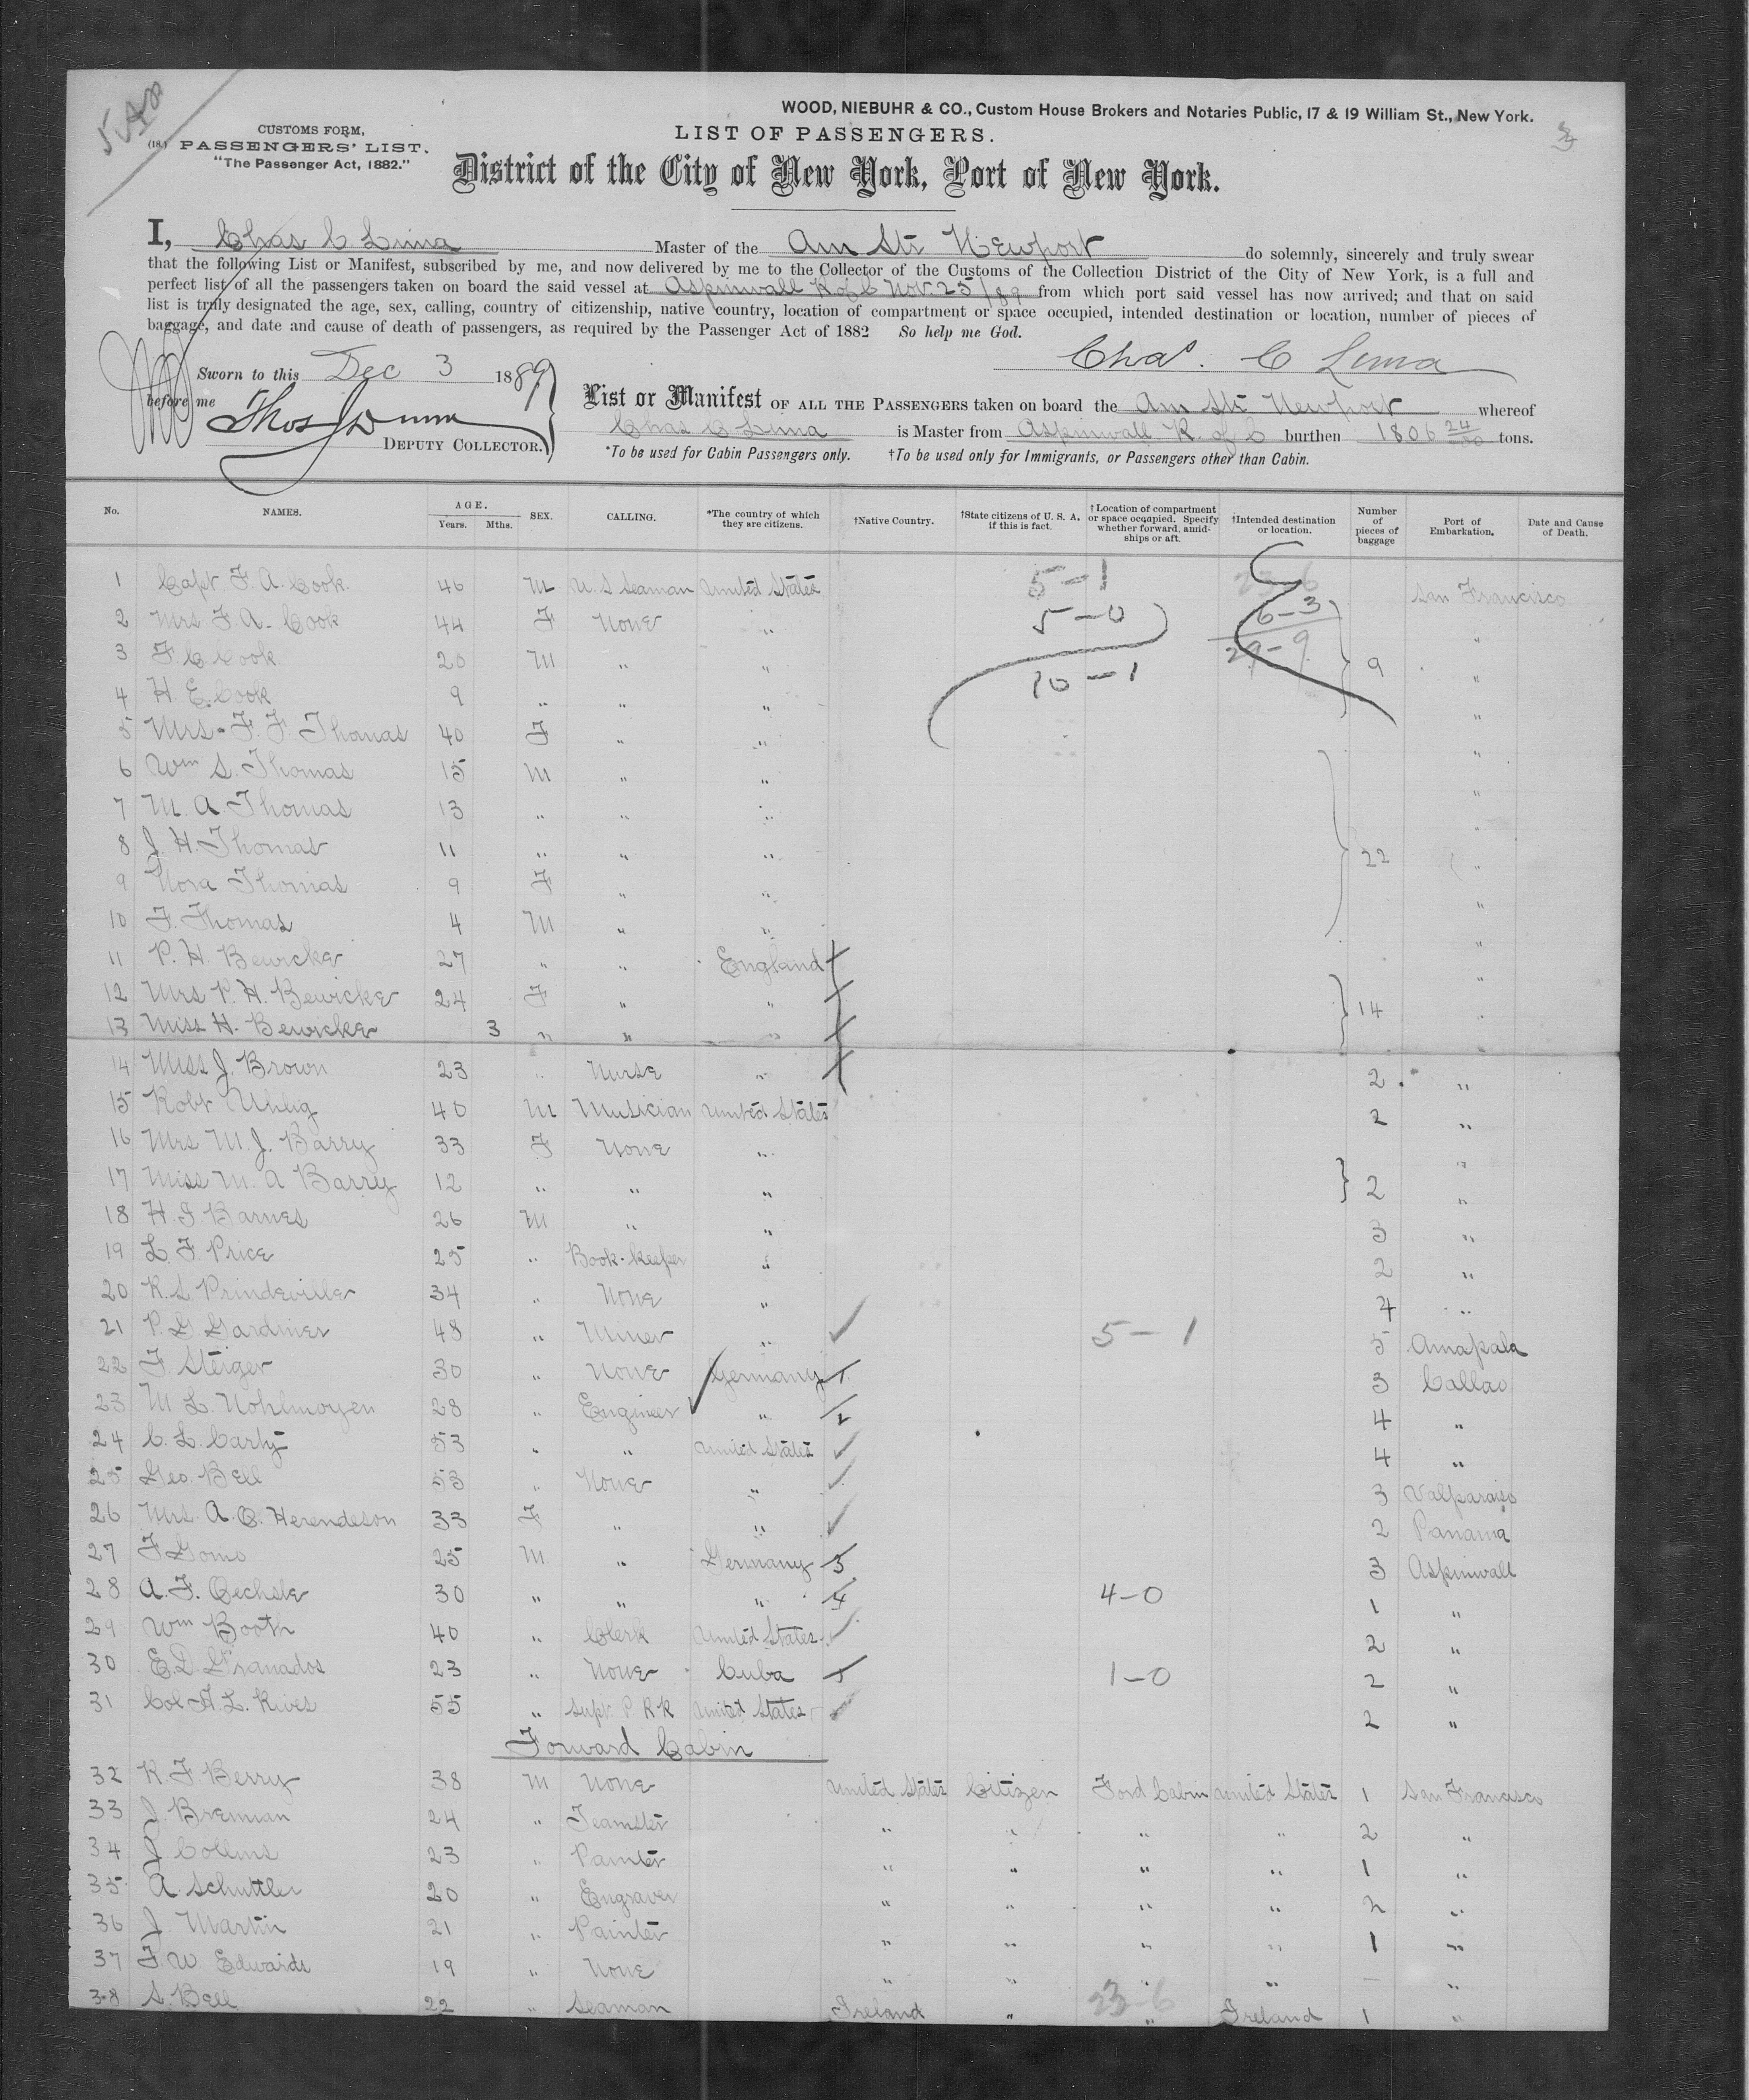 WOOD, NIEBUHR & CO., Custom House Brokers and Notaries Public, 17 & 19 William St., New York.
CUSTOMS FORM,
LIST OF PASSENGERS.
(18.) PASSENGERS' LIST.
"The Passenger Act, 1882."
District of the City of New York, Port of New York.
I, Chas C Lima Master of the Am Str Newport do solemnly, sincerely and truly swear
that the following List or Manifest, subscribed by me, and now delivered by me to the Collector of the Customs of the Collection District of the City of New York, is a full and
perfect list of all the passengers taken on board the said vessel at Aspinwall K of C Nov. 25/89 from which port said vessel has now arrived; and that on said
list is truly designated the age, sex, calling, country of citizenship, native country, location of compartment or space occupied, intended destination or location, number of pieces of
baggage, and date and cause of death of passengers, as required by the Passenger Act of 1882 So help me God.
Chas. C Lima
Sworn to this Dec 3 1889
before me
Thos J Dunn
DEPUTY COLLECTOR.
List or Manifest OF ALL THE PASSENGERS taken on board the Am Str Newport whereof
Chas C Lima is Master from Aspinwall K. of C burthen 1806 24/ tons.
*To be used for Cabin Passengers only. †To be used only for Immigrants, or Passengers other than Cabin.
No. NAMES. AGE. Years. Mths. SEX. CALLING. *The country of which they are citizens. †Native Country. †State citizens of U. S. A. if this is fact. †Location of compartment or space occupied. Specify whether forward, amidships or aft. †Intended destination or location. Number of pieces of baggage Port of Embarkation. Date and Cause of Death.
1 Capt. F. A. Cook 46 M U. S Seaman United States 5-1 23-6 San Francisco
2 Mrs F. A. Cook 44 F None " 5-0 6-3 "
3 F. C. Cook 20 M " " 10-1 29-9 9 "
4 H. E. Cook 9 " " " "
5 Mrs. F. F. Thomas 40 F " " "
6 Wm S. Thomas 15 M " " "
7 M. A. Thomas 13 " " " "
8 J. H. Thomas 11 " " " 22 "
9 Nora Thomas 9 F " " "
10 F. Thomas 4 M " " "
11 P. H. Bewicke 27 " " England "
12 Mrs P. H. Bewicke 24 F " " 14 "
13 Miss H. Bewicke 3 " " "
14 Miss J. Brown 23 " Nurse " 2 "
15 Robt Uhlig 40 M Musician United States 2 "
16 Mrs M. J. Barry 33 F None " "
17 Miss M. A Barry 12 " " " 2 "
18 H. F Barnes 26 M " " 3 "
19 L. F. Price 25 " Book-keeper " 2 "
20 R. L Prindeville 34 " None " 4 "
21 P. G Gardiner 48 " Miner " 5-1 5 Amapala
22 F Steiger 30 " None Germany 1 3 Callao
23 M L. Nohlmoyen 28 " Engineer " 2 4 "
24 C. L. Carty 53 " " United States 4 "
25 Geo. Bell 53 " None " 3 Valparaiso
26 Mrs. A. C. Herendeson 33 F " " 2 Panama
27 F Gomo 25 M " Germany 3 3 Aspinwall
28 A. F. Oechsle 30 " " " 4 4-0 1 "
29 Wm Booth 40 " Clerk United States 2 "
30 E. D. Granados 23 " None Cuba 1-0 2 "
31 Col H. L. Rives 55 " Supt P. RR United States 2 "
Forward Cabin
32 R. F Berry 38 M None United States Citizen Ford Cabin United States 1 San Francisco
33 J. Brennan 24 " Teamster " " " " 2 "
34 J Collins 23 " Painter " " " " 1 "
35 A. Schuttler 20 " Engraver " " " " 2 "
36 J. Martin 21 " Painter " " " " 1 "
37 F. W Edwards 19 " None " " " " – "
38 S. Bell 22 " Seaman Ireland " 23-6 " Ireland 1 "